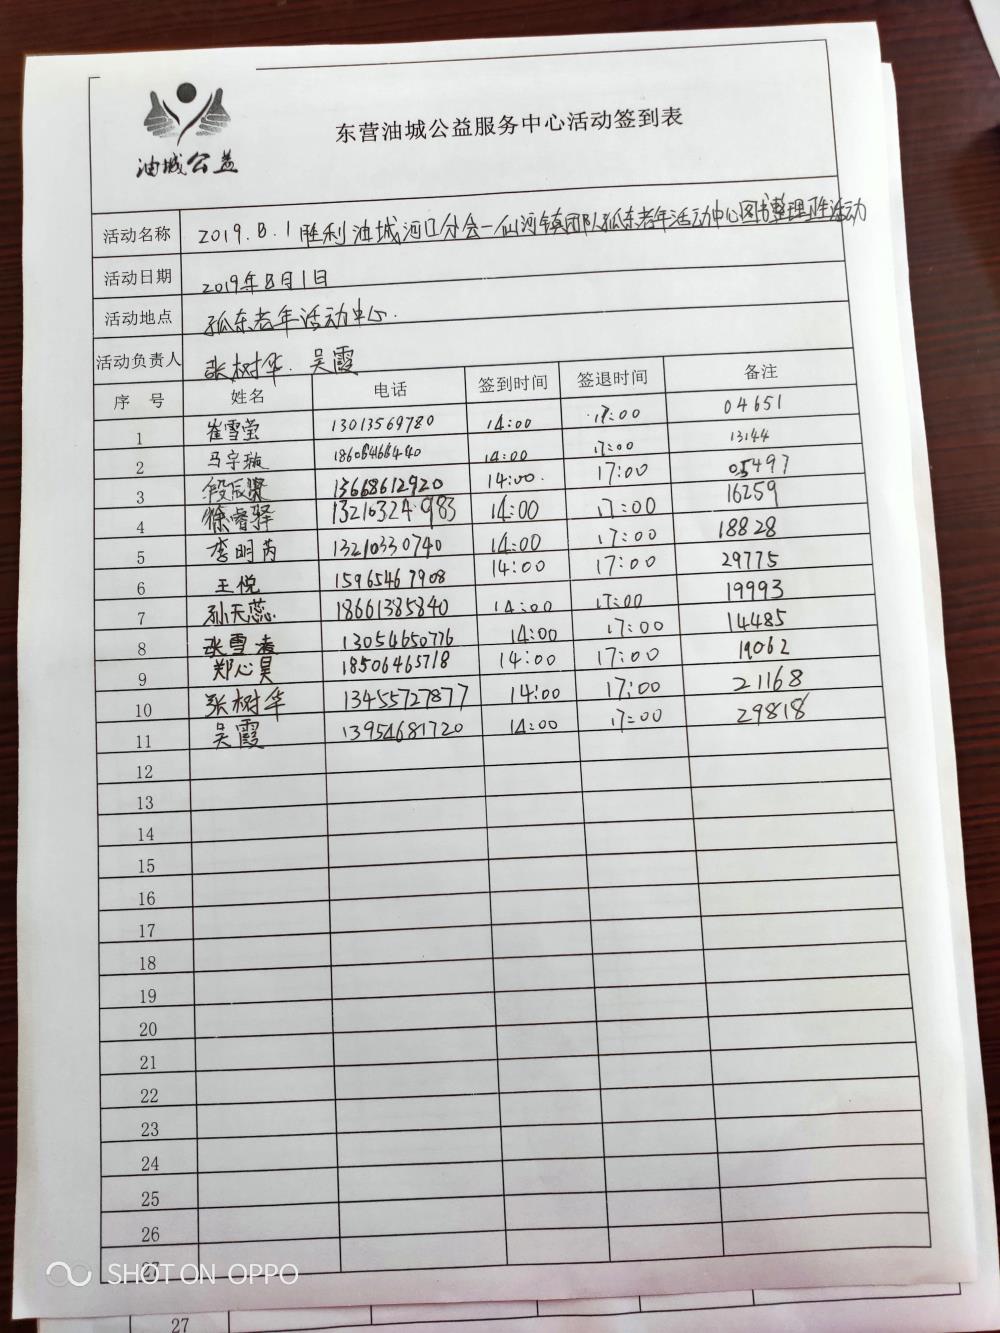 油城公益
东营油城公益服务中心活动签到表
活动名称 2019.8.1胜利油城河口分会—仙河镇团队孤东老年活动中心图书整理卫生活动
活动日期 2019年8月1日
活动地点 孤东老年活动中心.
活动负责人 张树华. 吴霞
序 号 姓名 电话 签到时间 签退时间 备注
1 崔雪莹 13013569780 14:00 17:00 04651
2 马宇璇 18606466440 14:00 17:00 13144
3 段辰燊 13668612920 14:00. 17:00 05497
4 徐睿驿 13210324983 14:00 17:00 16259
5 李明芮 13210330740 14:00 17:00 18828
6 王悦 15965467908 14:00 17:00 29775
7 孙天蕊 18661385840 14:00 17:00 19993
8 张雪凌 13054650776 14:00 17:00 14485
9 郑心昊 18506465718 14:00 17:00 19062
10 张树华 13455727877 14:00 17:00 21168
11 吴霞 13954681720 14:00 17:00 29818
12
13
14
15
16
17
18
19
20
21
22
23
24
25
26
27
SHOT ON OPPO
27